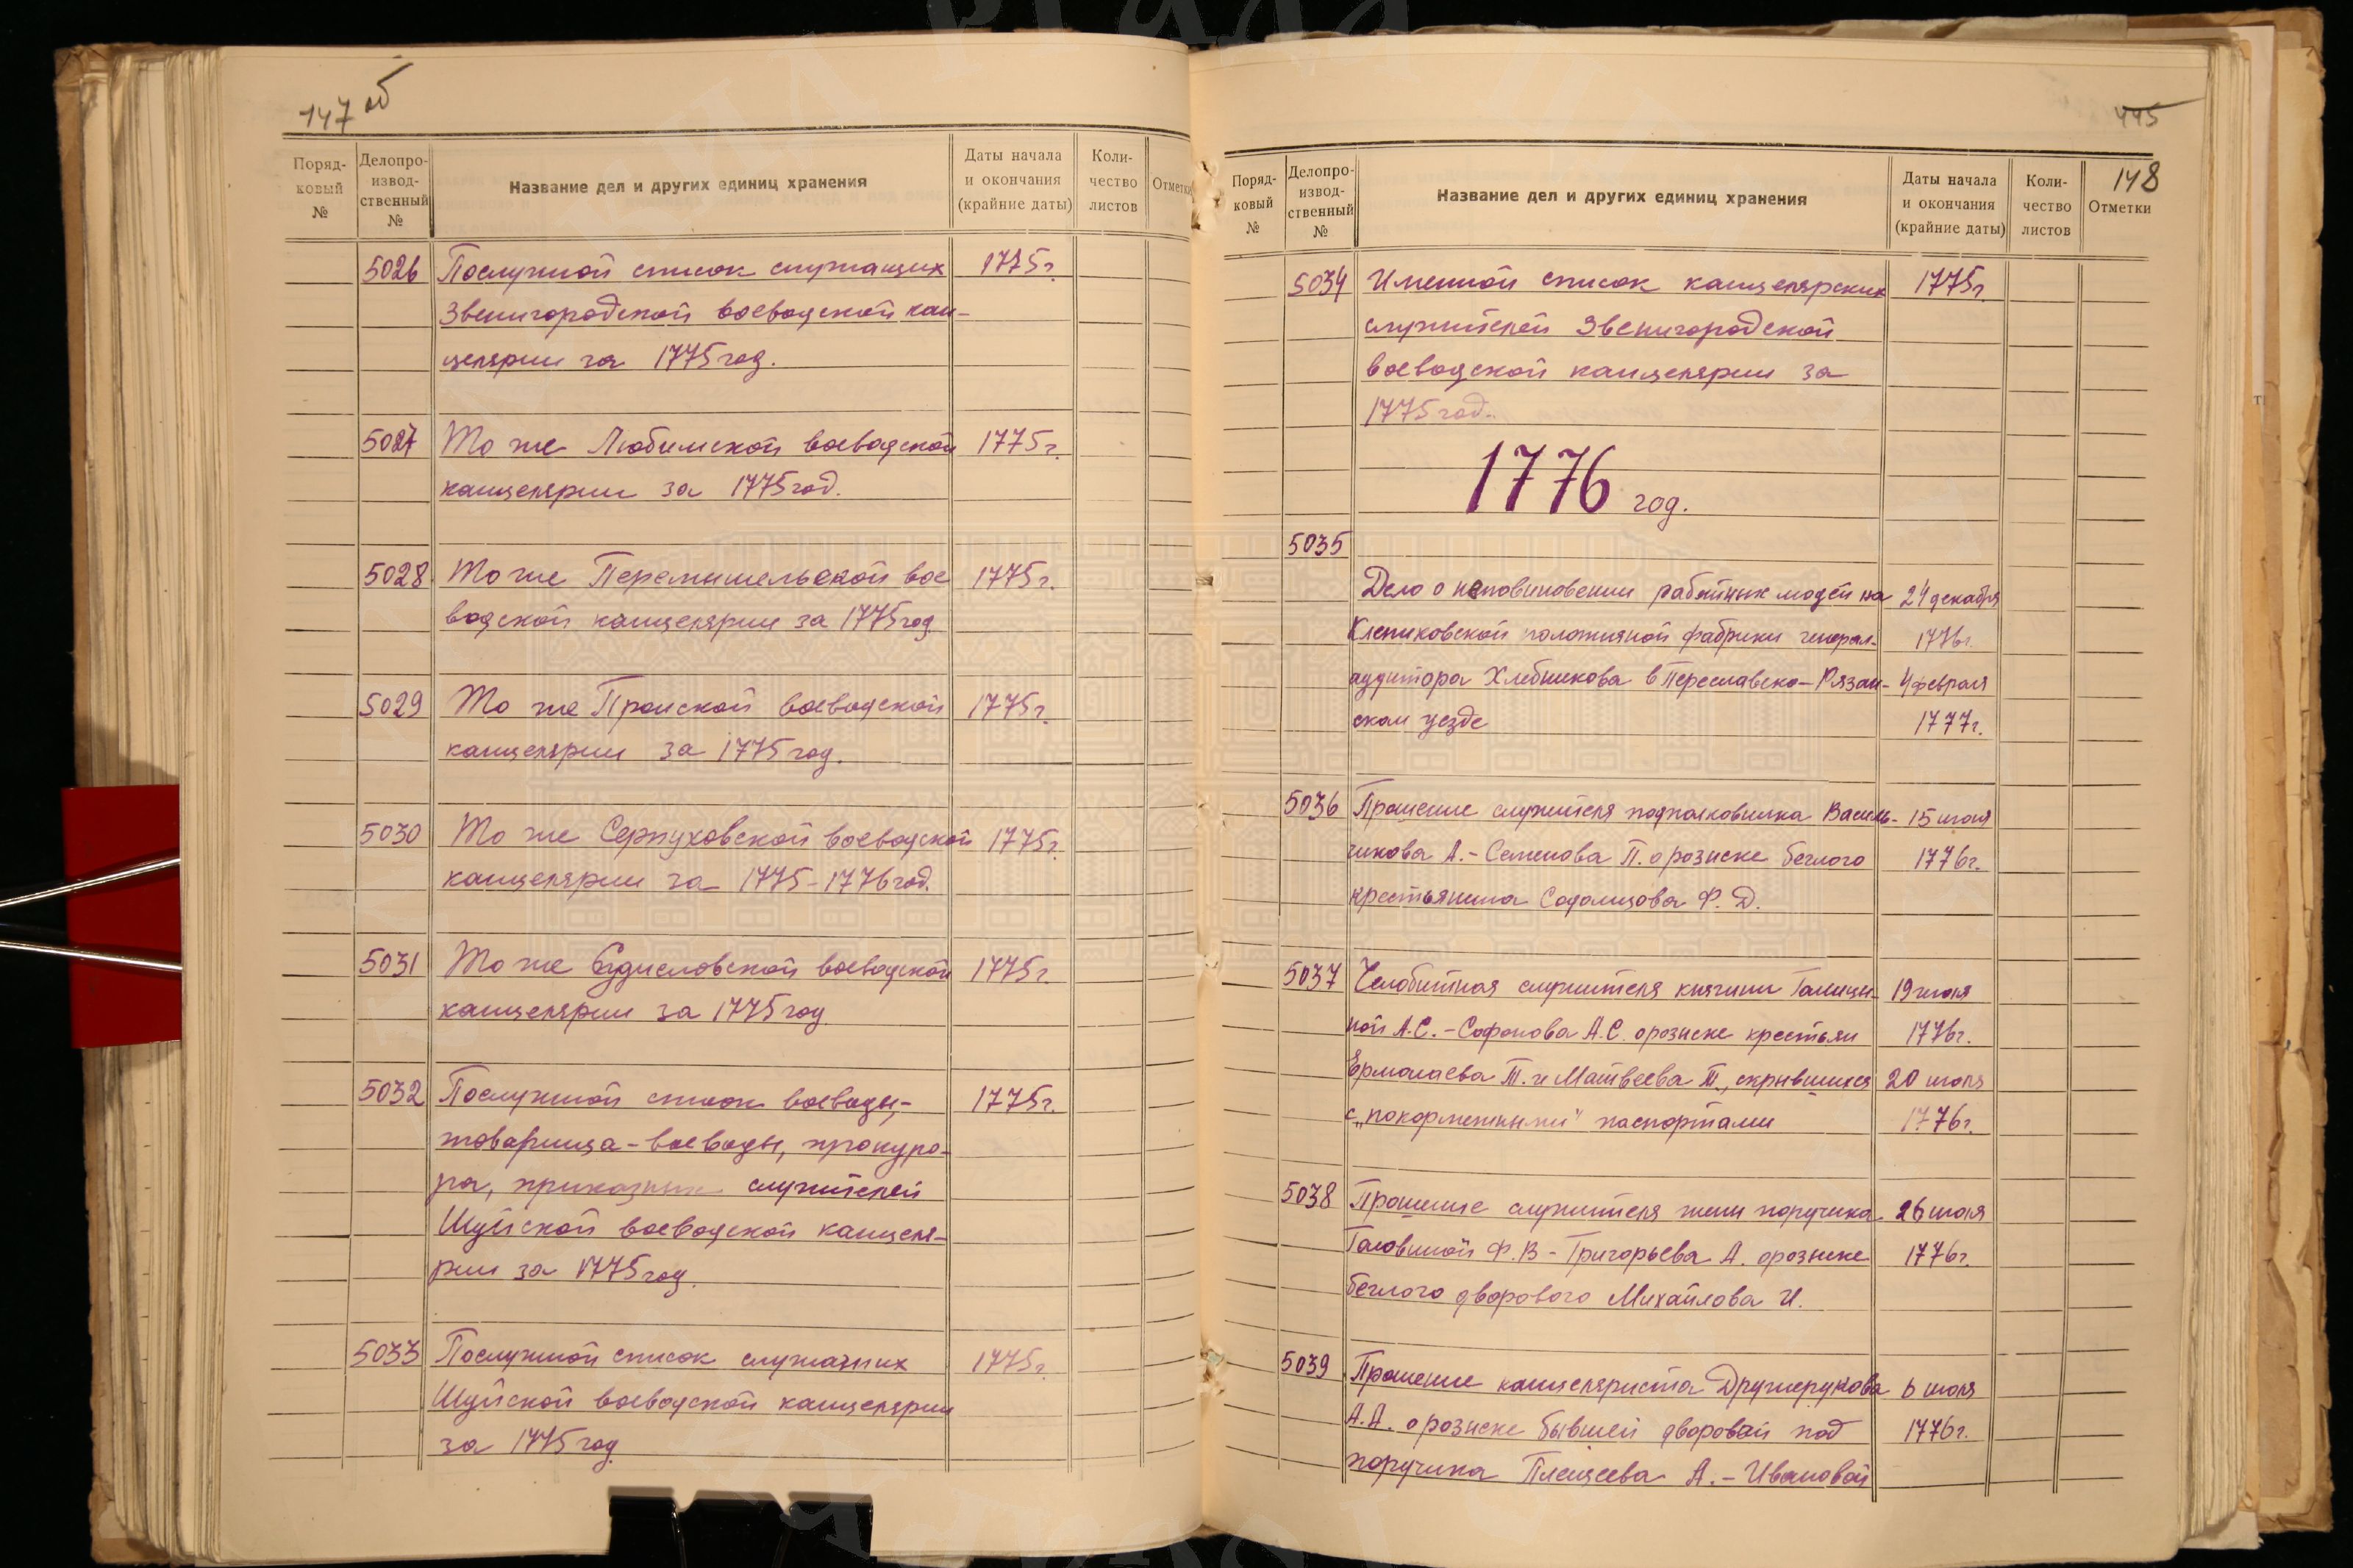 147 об
Поряд-
ковый
№
Делопро-
извод-
ственный
№
Название дел и других единиц хранения
Даты начала
и окончания
(крайние даты)
Коли-
чество
листов
Отметки
5026 Послужной список служащих 1775 г.
Звенигородской воеводской кан-
целярии за 1775 год.
5027 То же Любимской воеводской 1775 г.
канцелярии за 1775 год.
5028 То же Перемышельской вое 1775 г.
водской канцелярии за 1775 год
5029 То же Пронской воеводской 1775 г.
канцелярии за 1775 год.
5030 То же Серпуховской воеводской 1775 г.
канцелярии за 1775-1776 год.
5031 То же Судисловской воеводской 1775 г.
канцелярии за 1775 год
5032 Послужной список воеводы,- 1775 г.
товарища-воеводы, прокуро-
ра, приказных служителей
Шуйской воеводской канцеля-
рии за 1775 год.
5033 Послужной список служащих 1775 г.
Шуйской воеводской канцелярии
за 1775 год
445
148
Поряд-
ковый
№
Делопро-
извод-
ственный
№
Название дел и других единиц хранения
Даты начала
и окончания
(крайние даты)
Коли-
чество
листов
Отметки
5034 Именной список канцелярских 1775 г
служителей Звенигородской
воеводской канцелярии за
1775 год.
1776 год.
5035
Дело о неповиновении работных людей на 24 декабря
Клепиковской полотняной фабрики генерал- 1776 г.
аудитора Хлебникова в Переславско-Рязан- 4 февраля
ском уезде 1777 г.
5036 Прошение служителя подполковника Василь- 15 июля
чикова А.-Семенова П. о розыске беглого 1776 г.
крестьянина Содомцова Ф. Д.
5037 Челобитная служителя княгини Голицы- 19 июля
ной А.С.-Софонова А.С. о розыске крестьян 1776 г.
Ермолаева Т. и Матвеева Т., скрывшихся 20 июля
с „покормежными" паспортами 1776 г.
5038 Прошение служителя жены поручика 26 июля
Головиной Ф.В-Григорьева А. о розыске 1776 г.
беглого дворового Михайлова И.
5039 Прошение канцеляриста Дружерукова 6 июля
А.А. о розыске бывшей дворовой под 1776 г.
поручика Плещеева А.-Ивановой